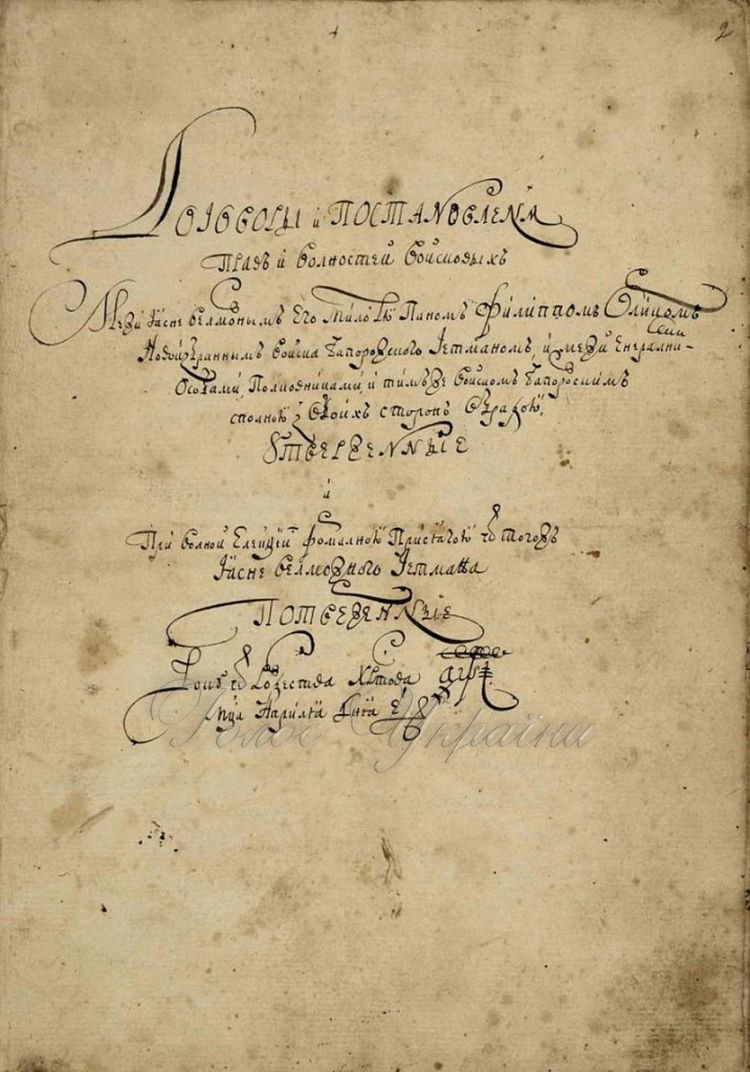 2
Договоры и ПОСТАНОВЛЕНѦ
Правъ и волностей войсковыхъ
Межи Ясне велможнымъ Его Милостю Паномъ Филиппомъ Орликомъ
Новоизбраннымъ войска Запорожского Гетманомъ, и межи Енералними
Особами, Полковниками, и тимъже войскомъ Запорожскимъ
сполною з обоихъ сторонъ обрадою,
ꙊТВЕРЖЕННЫЕ
и
При волной Елекцїи формалною Присягою ѿ тогожъ
Ясне велможного Гетмана
ПОТВЕРЖЕННЫЕ
Року ѿ Рожества Христова ҂аѱі
мца Априлїа дня е҃
Голос України